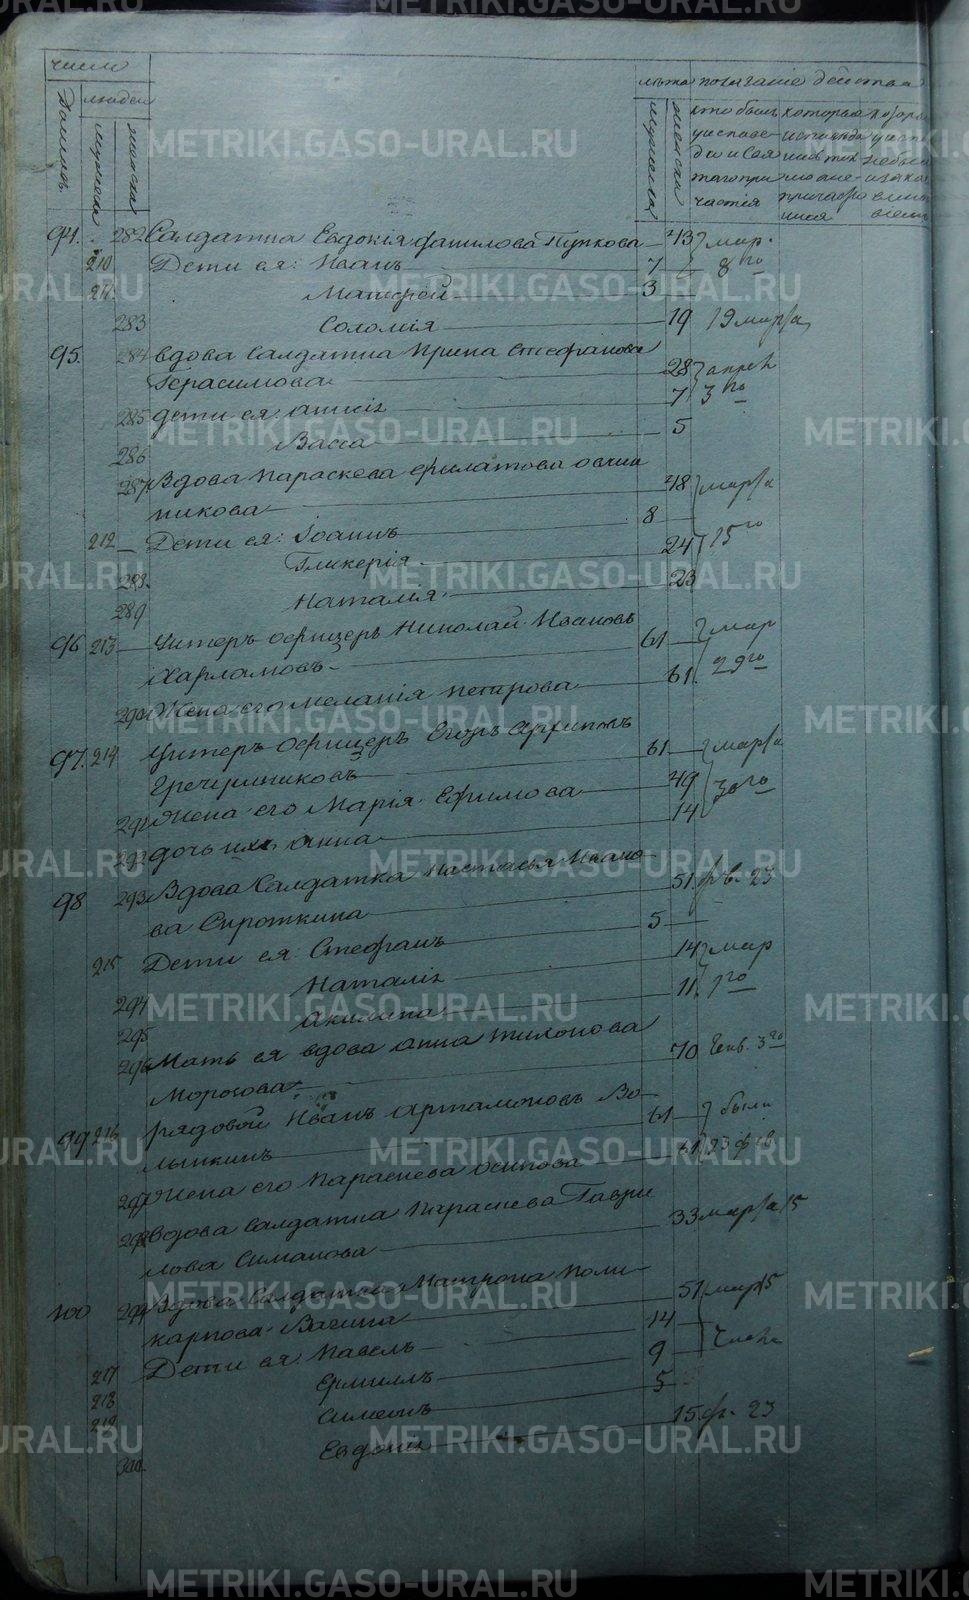 METRIKI.GASO-URAL.RU
числа
Домовъ
людей
мужеска
женска
лѣта
мужеска
женска
показаніе действа
кто былъ
у испове-
ди и свя
таго при
частія
94. 282 Салдатка Евдокія Данилова Пупкова 43 мар. 8го
210 Дети ея: Иванъ 7
211 Матфей 3
283 Соломія 19 19 мар
95. 284 Вдова Салдатка Ирина Стефанова
Герасимова 28 апрел 3го
285 Дети ея: Анисія 7
286 Васса 5
287 Вдова Параскева Филатова Овчин
никова 48 мар 15го
212 Дети ея: Іоаннъ 8
288. Гликерія 24
289 Наталія 23
96 213 Унтеръ офицеръ Николай Ивановъ
Харламовъ 61 мар 29го
290 Жена его Меланія Петрова 61
97. 214 Унтеръ офицеръ Егоръ
Гречишниковъ 61 мар 30го
291 Жена его Марія Ефимова 49
292 дочь ихъ Анна 14
98 293 Вдова Салдатка Настасья Ивано-
ва Сироткина 51 фев. 23
215 Дети ея: Стефанъ 5
294 Наталія 14 мар 1го
295 Акилина 11
296 Мать ея вдова Анна Тихонова
Морозова 70 Генв. 3го
99 216 рядовой Иванъ Артамоновъ Во-
лынкинъ 61 были
297 Жена его Параскева Осипова 61 23 фев
298 Вдова Салдатка Параскева Гаври
лова Симанова 33 мар 15
100 299 Вдова Салдатка Матрона Поли-
карпова Вагина 51 мар 15
217 Дети ея: Павелъ 14
218 Ермилъ 9
219 Симеонъ 5
300. Евдокія 15 фе. 23